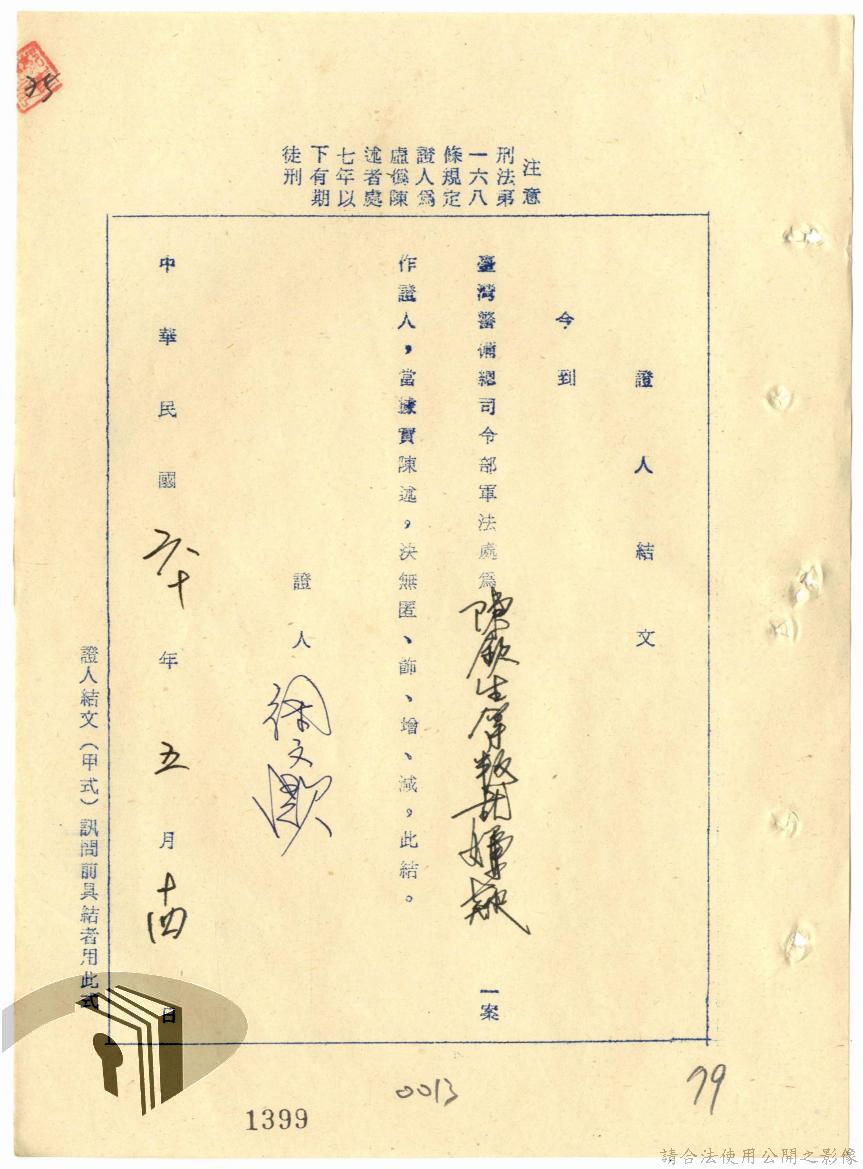 注意
刑法第
一六八
條規定
證人為
虛僞陳
述者處
七年以
下有期
徒刑
證人結文
今到
臺灣警備總司令部軍法處爲陳欽生等叛亂嫌疑一案
作證人，當據實陳述，決無匿、飾、增、減，此結。
證人
中華民國六十年五月十四日
證人結文（甲式）訊問前具結者用此式
35
0013
79
1399
請合法使用公開之影像